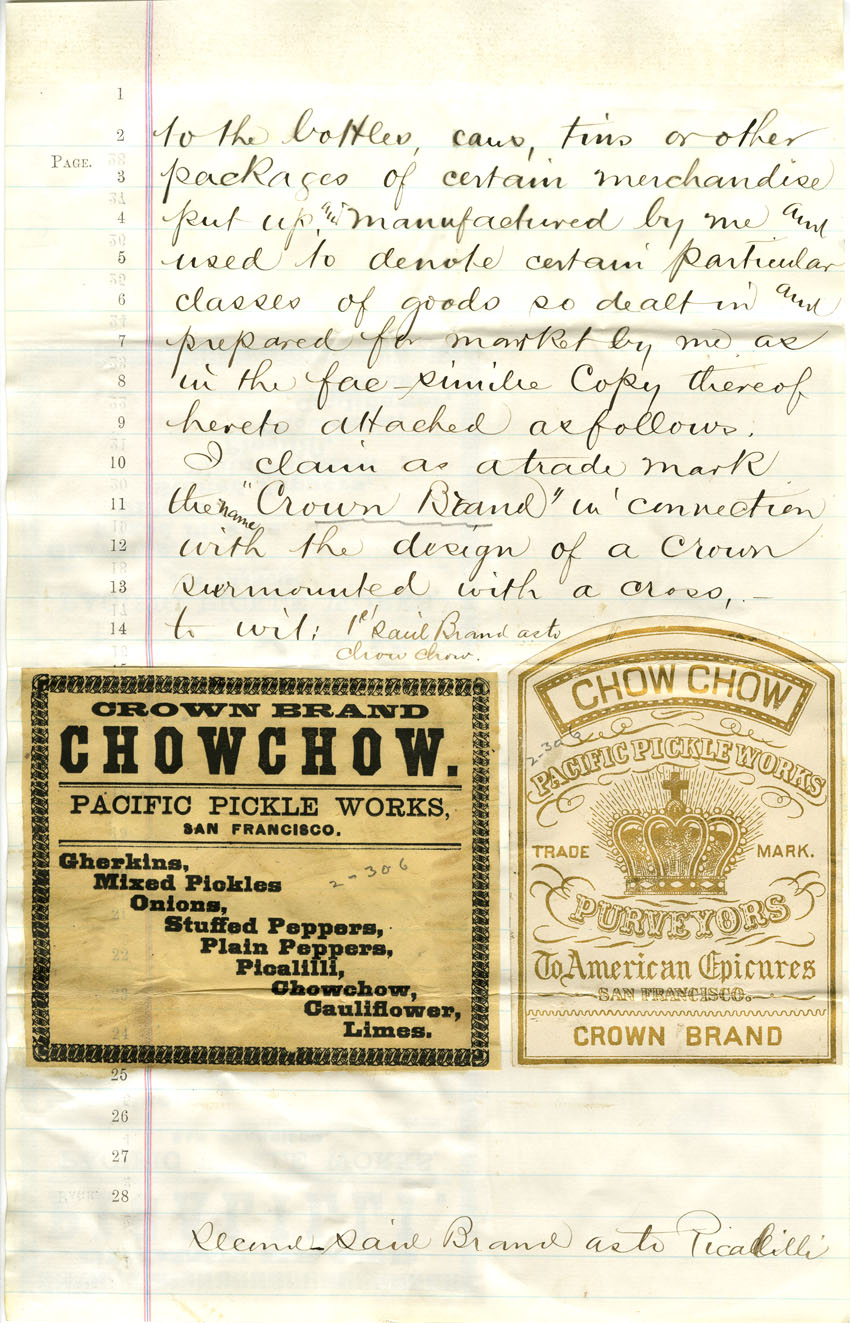 1
2 to the bottles, cans, tins or other
PAGE.
3 packages of certain merchandise
4 put up, and manufactured by me and
5 used to denote certain particular
6 classes of goods so dealt in and
7 prepared for market by me as
8 in the fac-simile Copy thereof
9 hereto attached as follows.
10 I claim as a trade mark
11 the name "Crown Brand" in connection
12 with the design of a Crown
13 surmounted with a cross, -
14 to wit; 1st said Brand as to
Chow Chow.
CROWN BRAND
CHOWCHOW.
PACIFIC PICKLE WORKS,
SAN FRANCISCO.
Gherkins,
Mixed Pickles
Onions,
Stuffed Peppers,
Plain Peppers,
Picalilli,
Chowchow,
Cauliflower,
Limes.
2-306
CHOW CHOW
2-306
PACIFIC PICKLE WORKS
TRADE MARK.
PURVEYORS
To American Epicures
SAN FRANCISCO.
CROWN BRAND
21
22
23
24
25
26
27
28
Second said Brand as to Picalilli